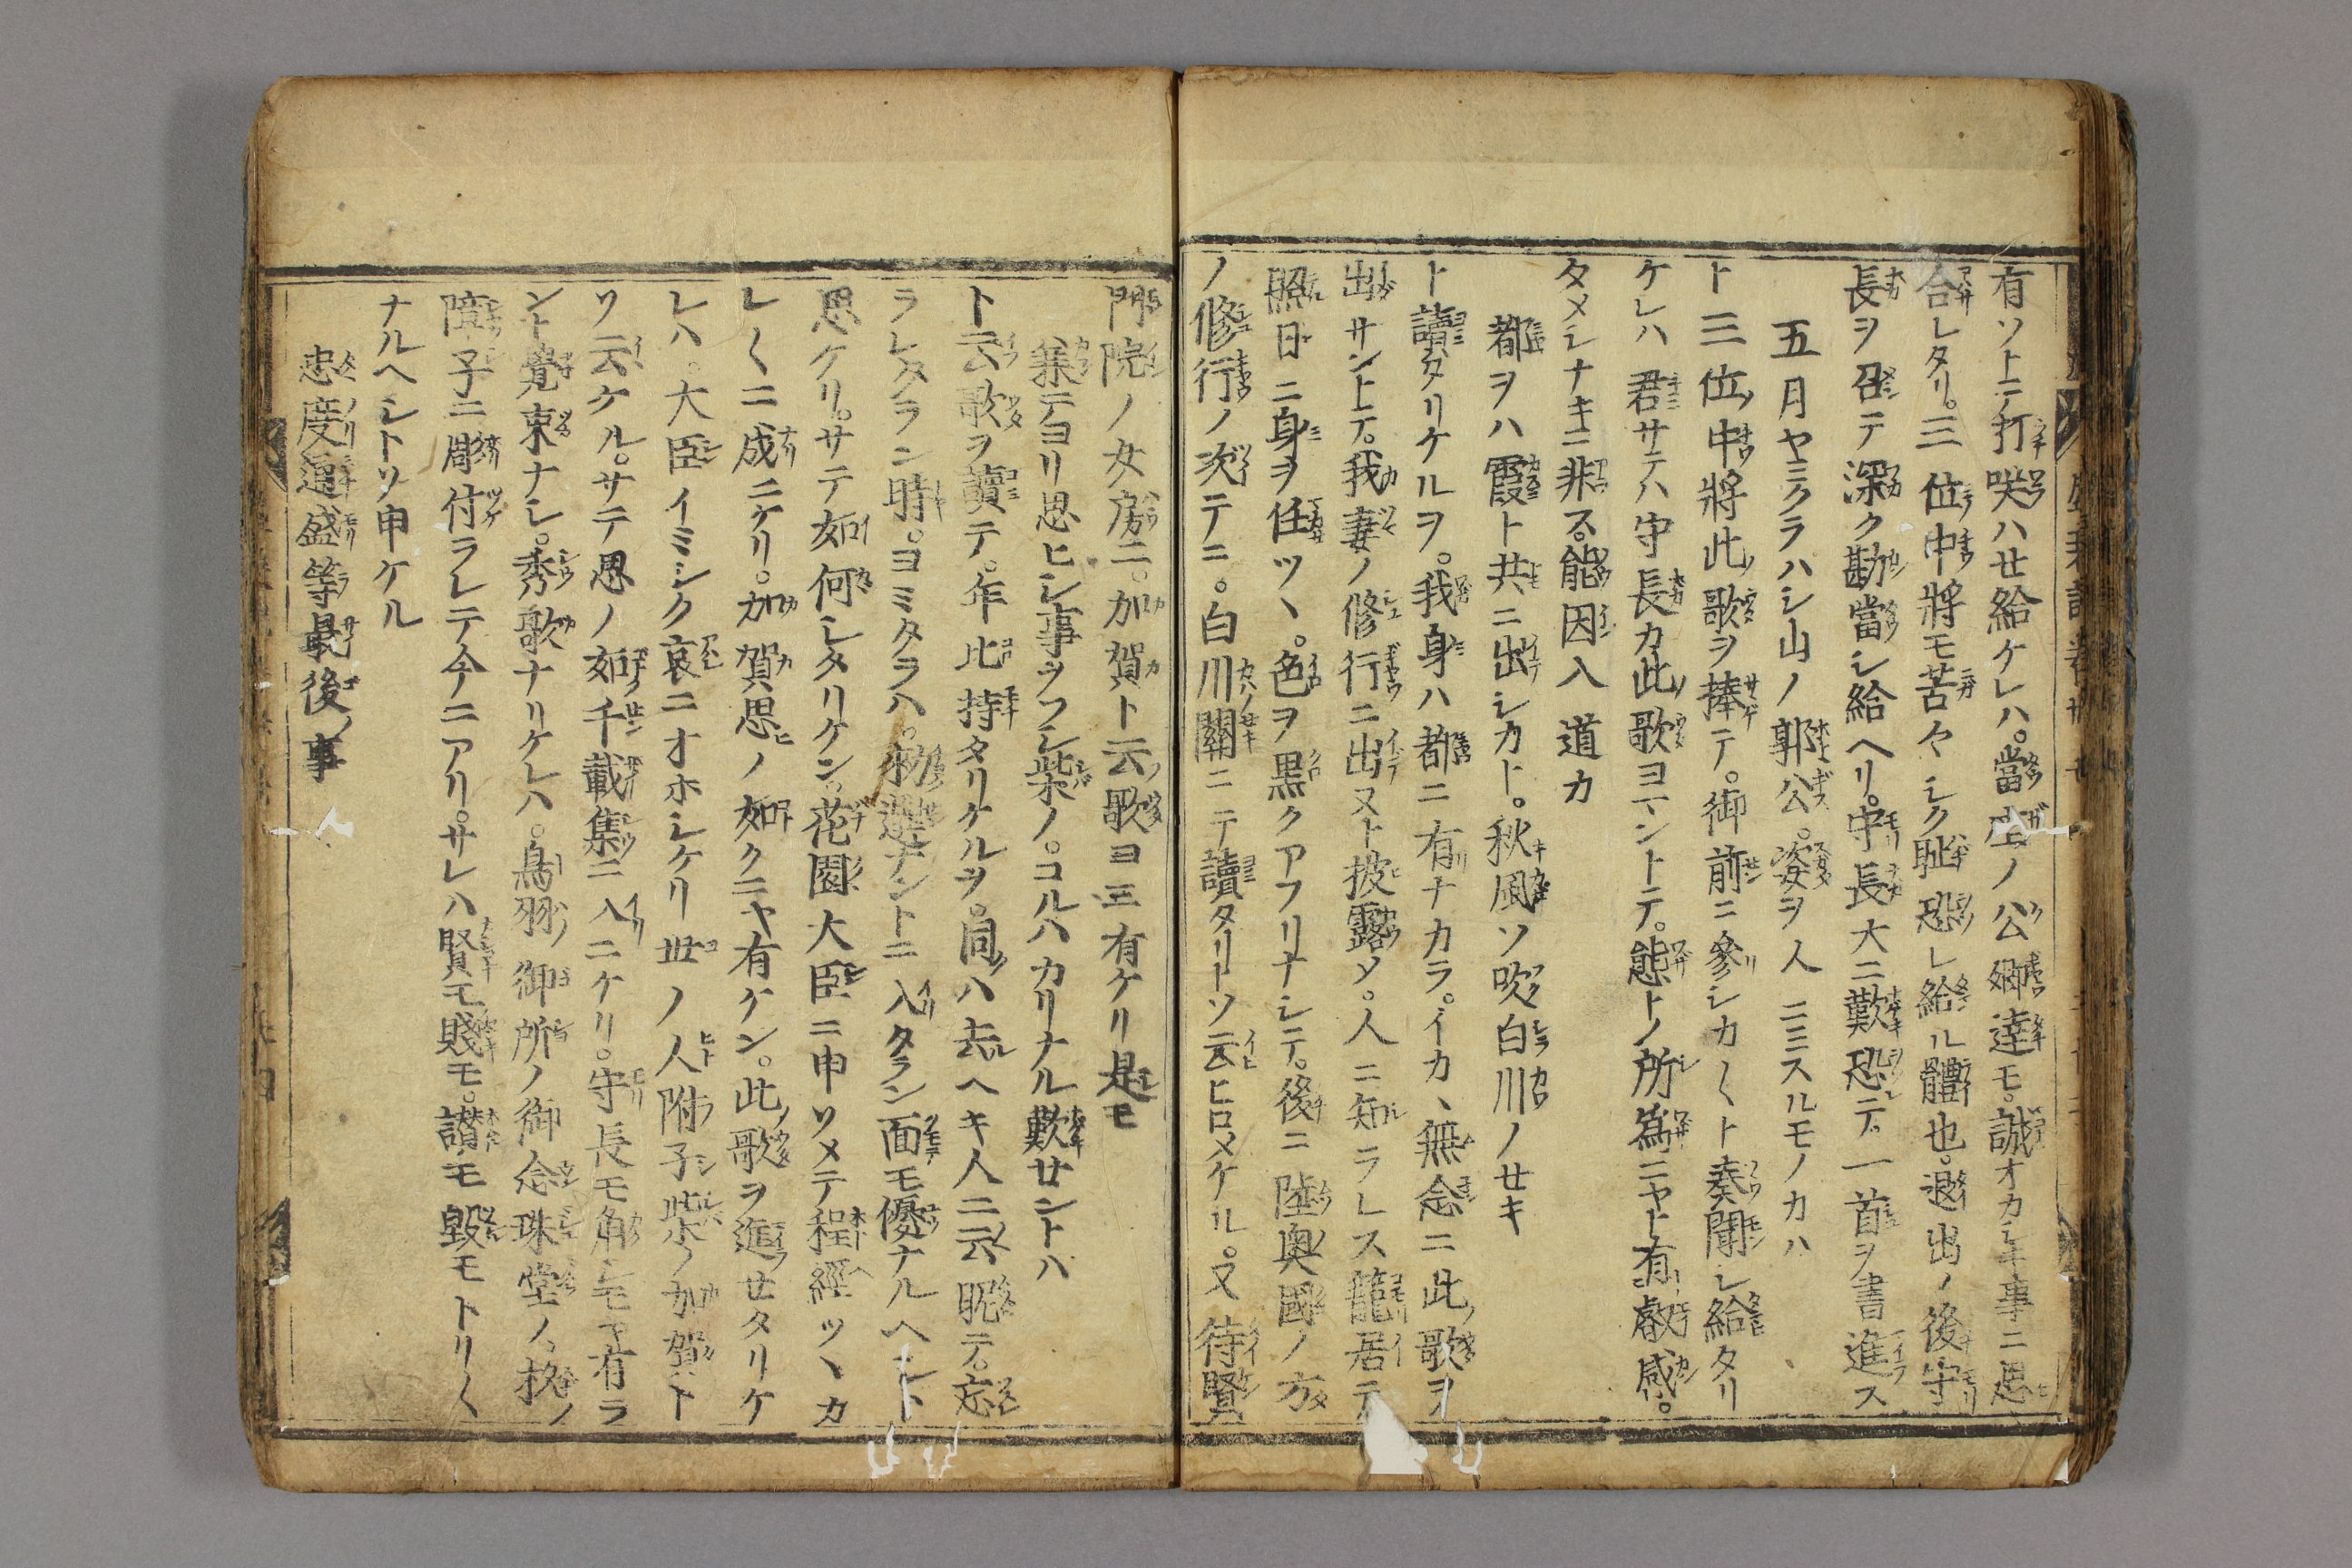 有ソトテ打咲ハセ給ケレハ。當座ノ公卿達モ。誠オカシキ事ニ思
合レタリ。三位中將モ苦々シク耻恐レ給ル體也。退出ノ後守
長ヲ召テ深ク勘當シ給ヘリ。守長大ニ歎恐テ。一首ヲ書進ス
五月ヤミクラハシ山ノ郭公。姿ヲ人ニミスルモノカハ
ト三位中將此歌ヲ捧テ。御前ニ參シカ〱ト奏聞シ給タリ
ケレハ君サテハ守長カ此歌ヨマントテ。態トノ所爲ニヤト有叡感。
タメシナキニ非ス。能因入道カ
都ヲハ霞ト共ニ出シカト。秋風ソ吹白川ノセキ
ト讀タリケルヲ。我身ハ都ニ有ナカラ。イカヽ無念ニ此歌ヲ
出サントテ。我妻ノ修行ニ出ヌト披露メ。人ニ知ラレス籠居テ
照日ニ身ヲ任ツヽ。色ヲ黒クアフリナシテ。後ニ陸奥國ノ方
ノ修行ノ次テニ。白川關ニテ讀タリトソ云ヒロメケル。又待賢
門院ノ女房ニ。加賀ト云歌ヨミ有ケリ是モ
兼テヨリ思ヒシ事ヲフシ柴ノ。コルハカリナル歎セントハ
ト云歌ヲ讀テ。年比持タリケルヲ。同ハ去ヘキ人ニ云眤テ。忘
ラレタラン時。ヨミタラハ。勅選ナントニ入タラン面モ優ナルヘシト
思ケリ。サテ如何シタリケン。花園大臣ニ申ソメテ程經ツヽカ
レ〱ニ成ニケリ。加賀思ノ如クニヤ有ケン。此歌ヲ進セタリケ
レハ。大臣イミシク哀ニオホシケリ世ノ人附子柴ノ加賀ト
ソ云ケル。サテ思ノ如千載集ニ入ニケリ。守長モ角シモヤ有ラ
ント覺束ナシ。秀歌ナリケレハ。鳥羽御所ノ御念珠堂ノ。杉ノ
障子ニ彫付ラレテ今ニアリ。サレハ賢モ賤モ。讃モ毀モトリ〱
ナルヘシトソ申ケル
忠度通盛等最後ノ事